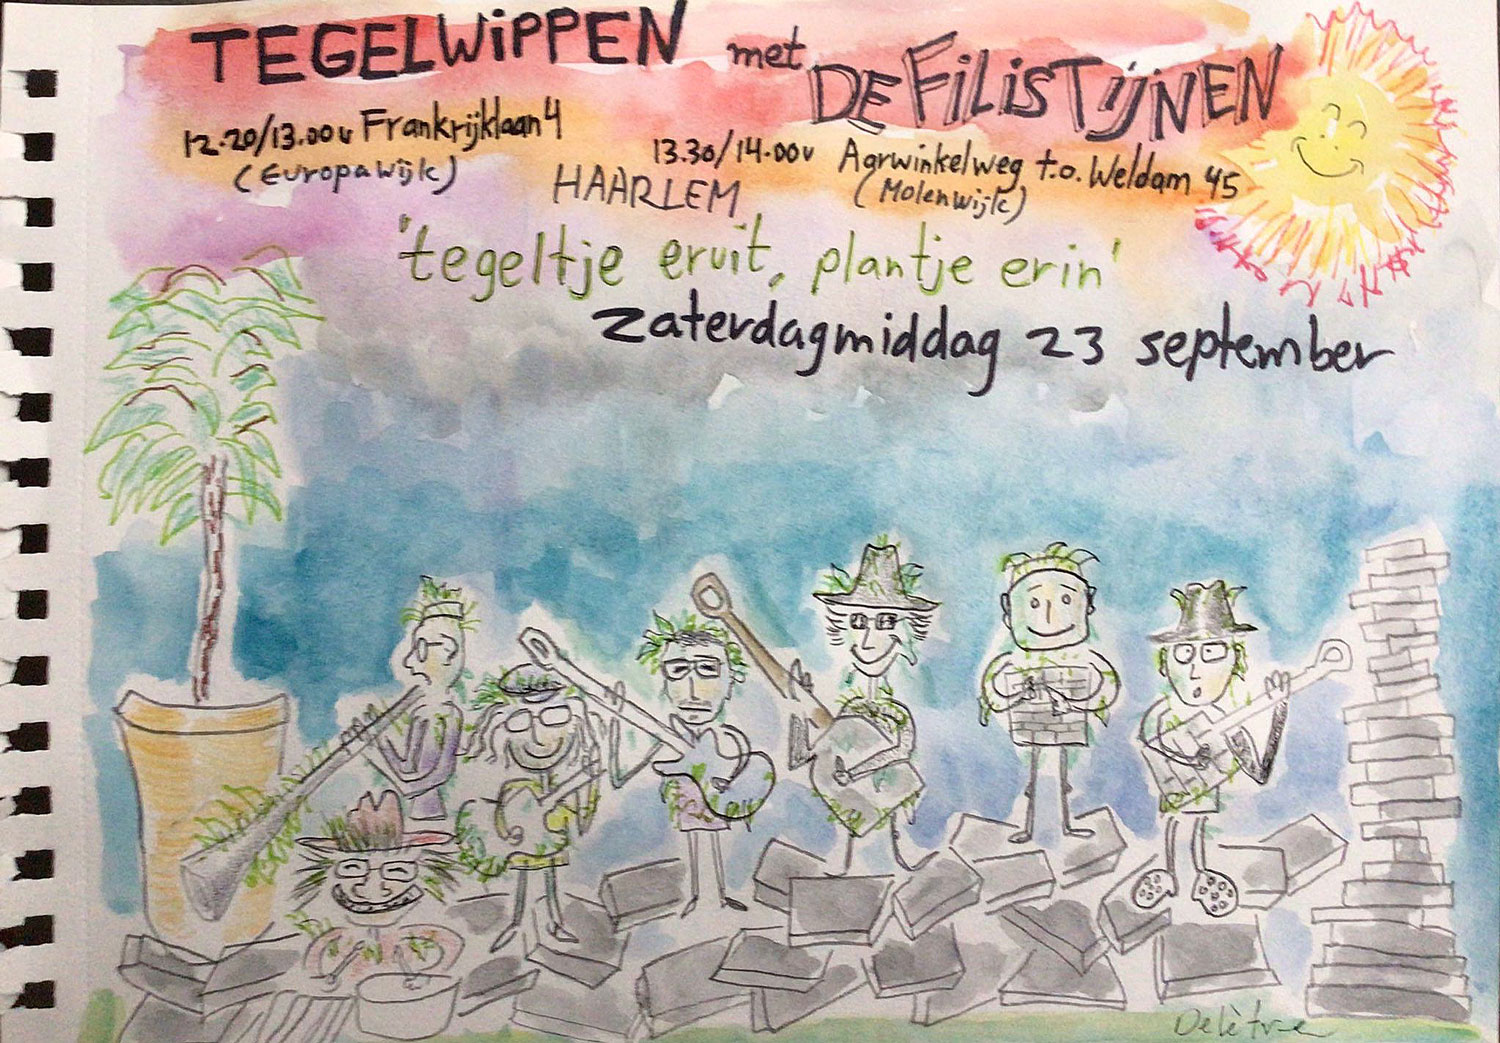 TEGELWIPPEN met DE FILISTIJNEN
12.20/13.00u Frankrijklaan 4
(Europawijk)
HAARLEM
13.30/14.00u Agrwinkelweg t.o. Weldam 45
(Molenwijk)
'tegeltje eruit, plantje erin'
zaterdagmiddag 23 september
Delètre